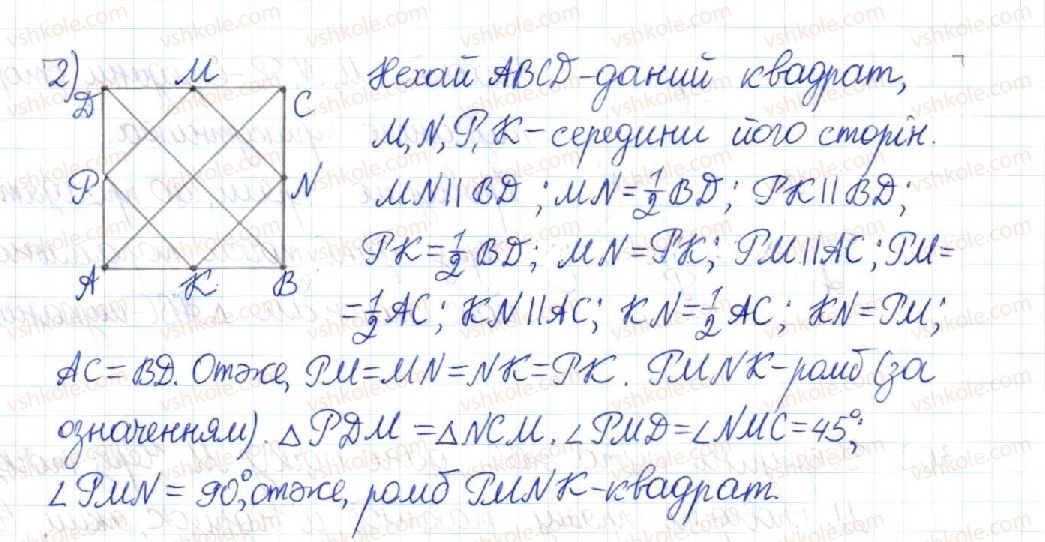 2)
M
D
C
P
N
A
K
B
Нехай ABCD - даний квадрат,
M, N, P, K - середини його сторін.
MN || BD; MN = 1/2 BD; PK || BD;
PK = 1/2 BD; MN = PK; PM || AC; PM =
= 1/2 AC; KN || AC; KN = 1/2 AC; KN = PM;
AC = BD. Отже, PM = MN = NK = PK. PMNK - ромб (за
означенням). △PDM = △NCM. ∠PMD = ∠NMC = 45°;
∠PMN = 90°, отже, ромб PMNK - квадрат.
vshkole.com